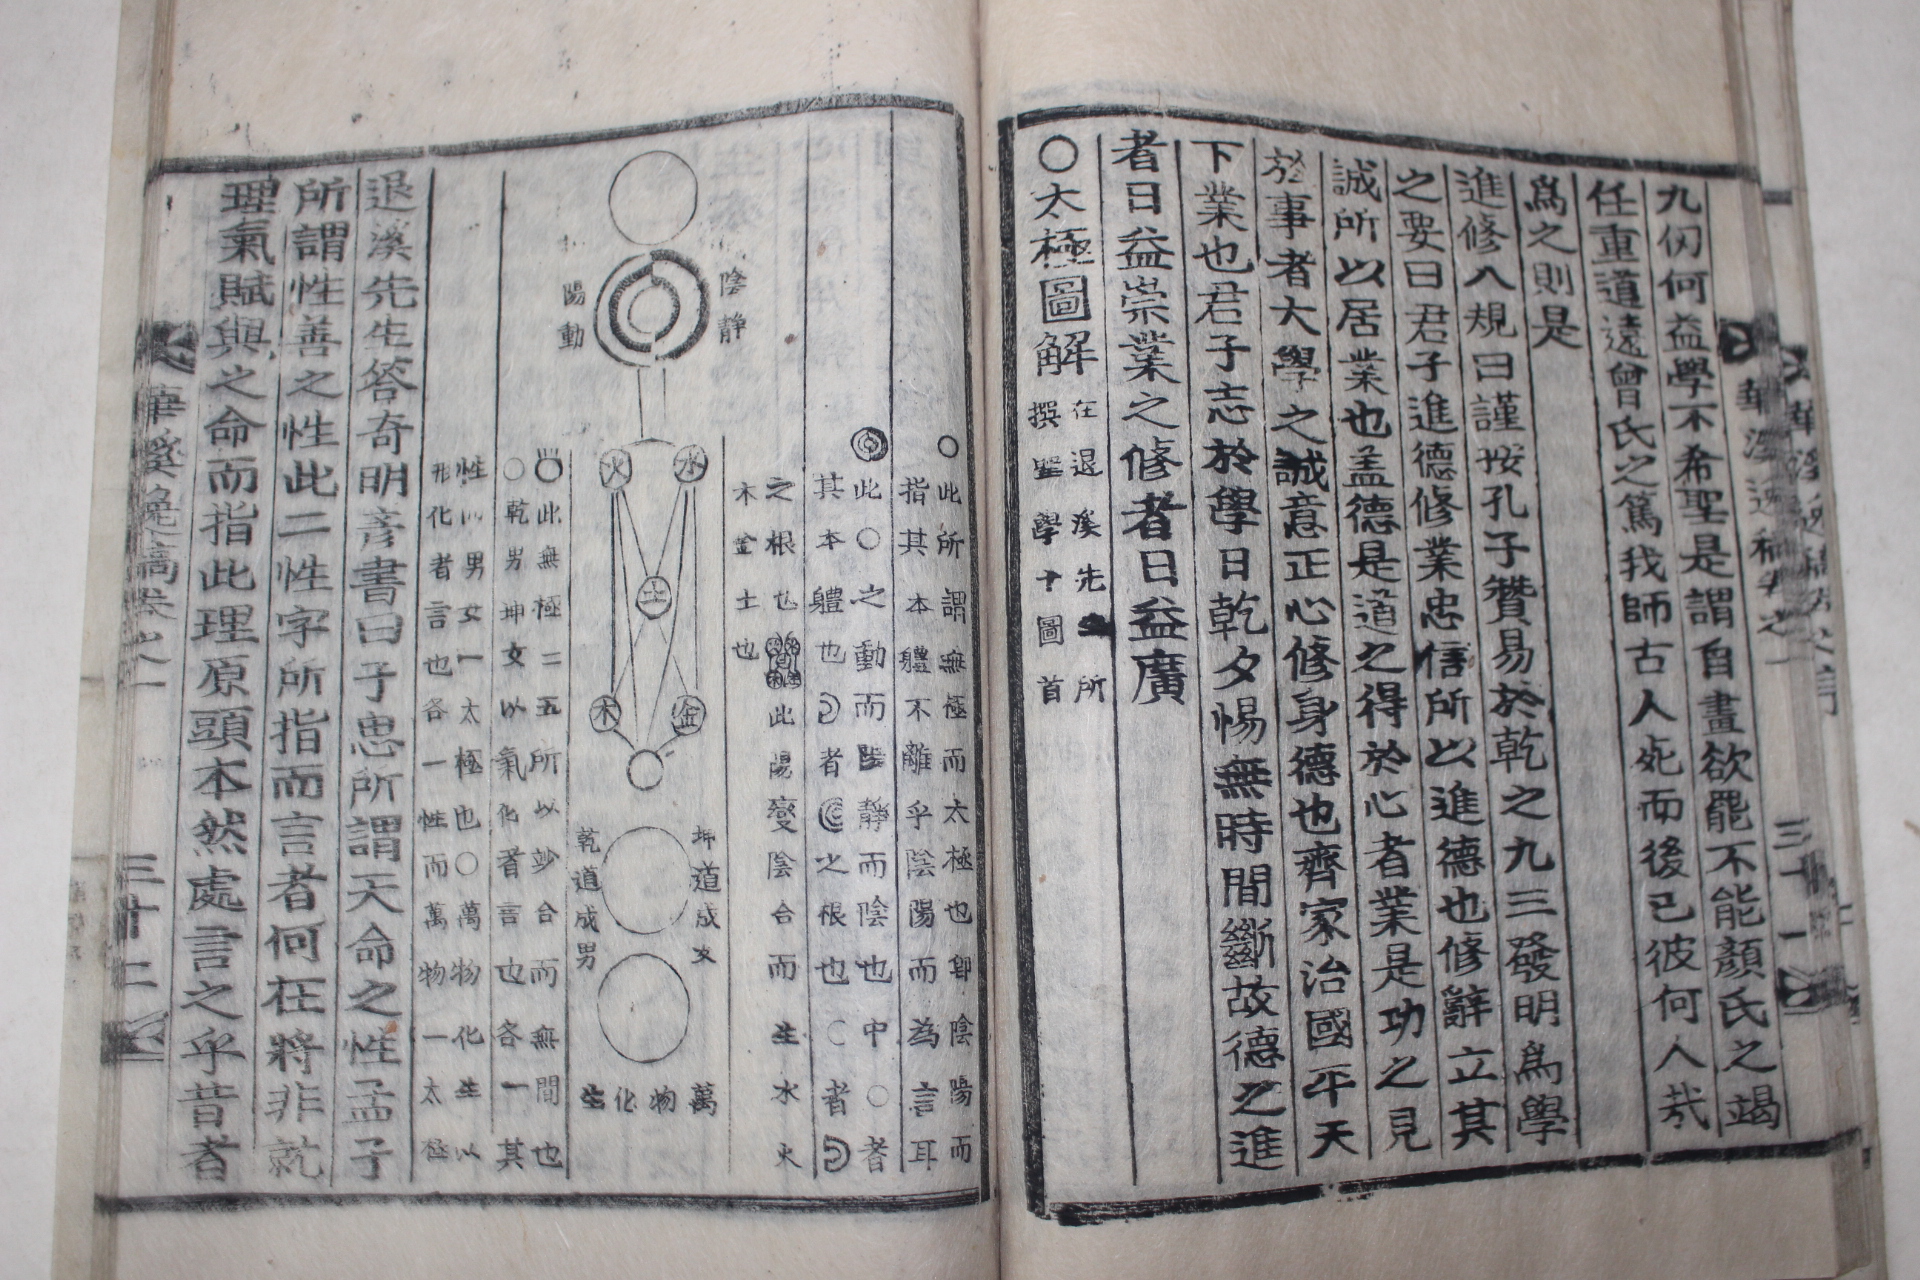 九仞何益學不希聖是謂自畫欲罷不能顏氏之竭
任重道遠曾氏之篤我師古人死而後已彼何人哉
爲之則是
進修八規曰謹按孔子贊易於乾之九三發明爲學
之要曰君子進德修業忠信所以進德也修辭立其
誠所以居業也盖德是道之得於心者業是功之見
於事者大學之誠意正心修身德也齊家治國平天
下業也君子志於學日乾夕惕無時間斷故德之進
者日益崇業之修者日益廣
○太極圖解
在退溪先生所
撰聖學十圖首
三十一
○此所謂無極而太極也卽陰陽而
指其本軆不離乎陰陽而為言耳
此○之動而陽靜而陰也中○者
其本軆也
者
之根也
者
之根也
此陽變陰合而生水火
木金土也
陰靜
陽動
火
水
土
木
金
坤道成女
乾道成男
萬物化生
此無極二五所以妙合而無間也
○乾男坤女以氣化者言也各一其
性而男女一太極也○萬物化生以
形化者言也各一性而萬物一太極
退溪先生答奇明彥書曰子思所謂天命之性孟子
所謂性善之性此二性字所指而言者何在將非就
理氣賦與之命而指此理原頭本然處言之乎昔者
三十二